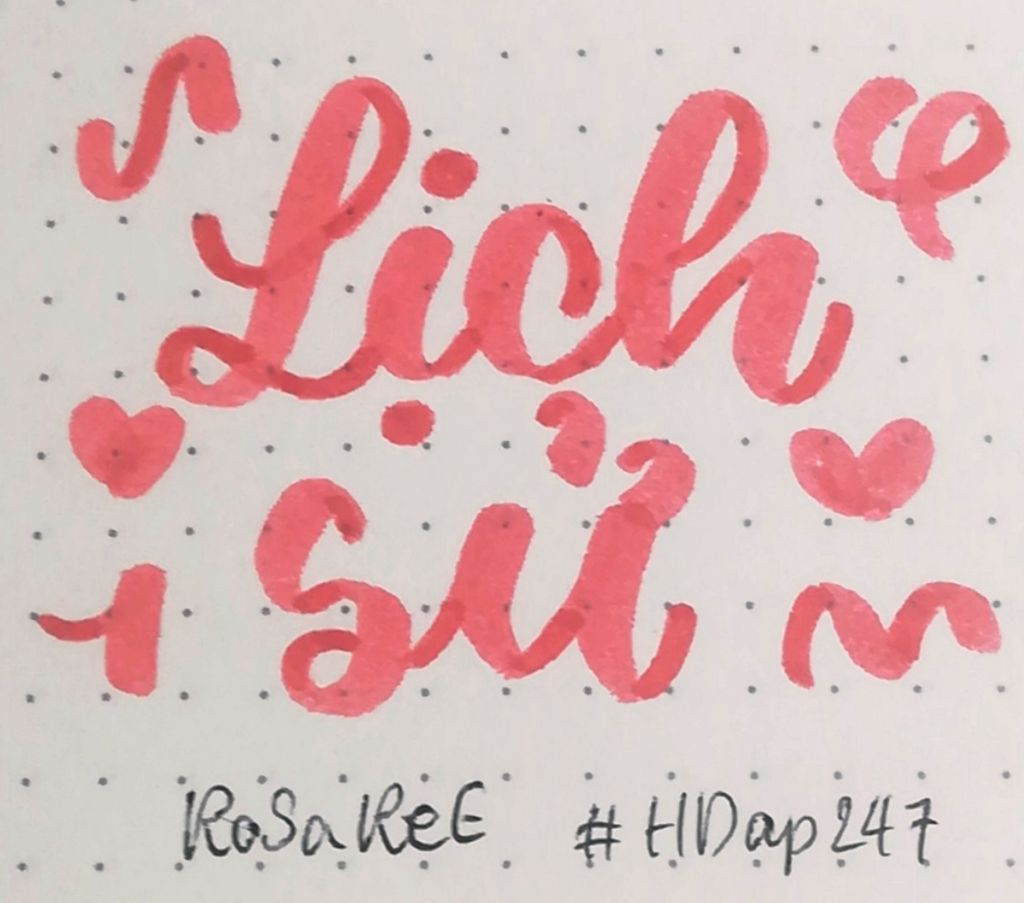 Lịch
sử
RoSaReE #HDap247